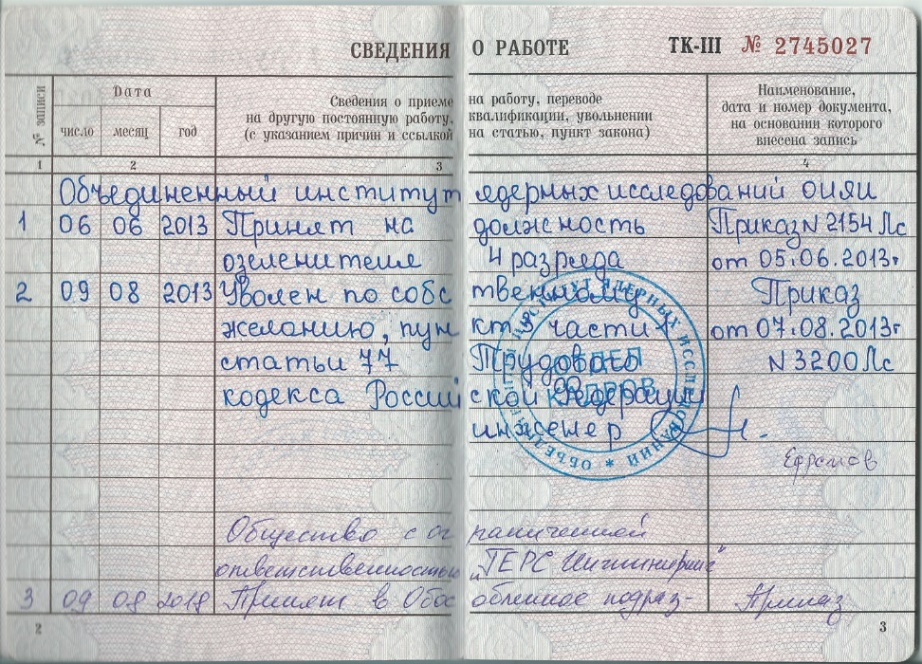 СВЕДЕНИЯ О РАБОТЕ ТК-III № 2745027
№ записи
Дата
число месяц год
Сведения о приеме на работу, переводе
на другую постоянную работу, квалификации, увольнении
(с указанием причин и ссылкой на статью, пункт закона)
Наименование,
дата и номер документа,
на основании которого
внесена запись
1 2 3 4
Объединенный институт ядерных исследований ОИЯИ
1 06 06 2013 Принят на должность Приказ N 2154 Лс
озеленителя 4 разряда от 05.06.2013г
2 09 08 2013 Уволен по собственному Приказ
желанию, пункт 3 части 1 от 07.08.2013г
статьи 77 Трудового N 3200 Лс
кодекса Российской Федерации
инженер
Ефремов
ОБЪЕДИНЕННЫЙ ИНСТИТУТ ЯДЕРНЫХ ИССЛЕДОВАНИЙ
ОТДЕЛ
КАДРОВ
Общество с ограниченной
ответственностью „ГЕРС Инжиниринг"
3 09 08 2018 Принят в Обособленное подраз- Приказ
2 3